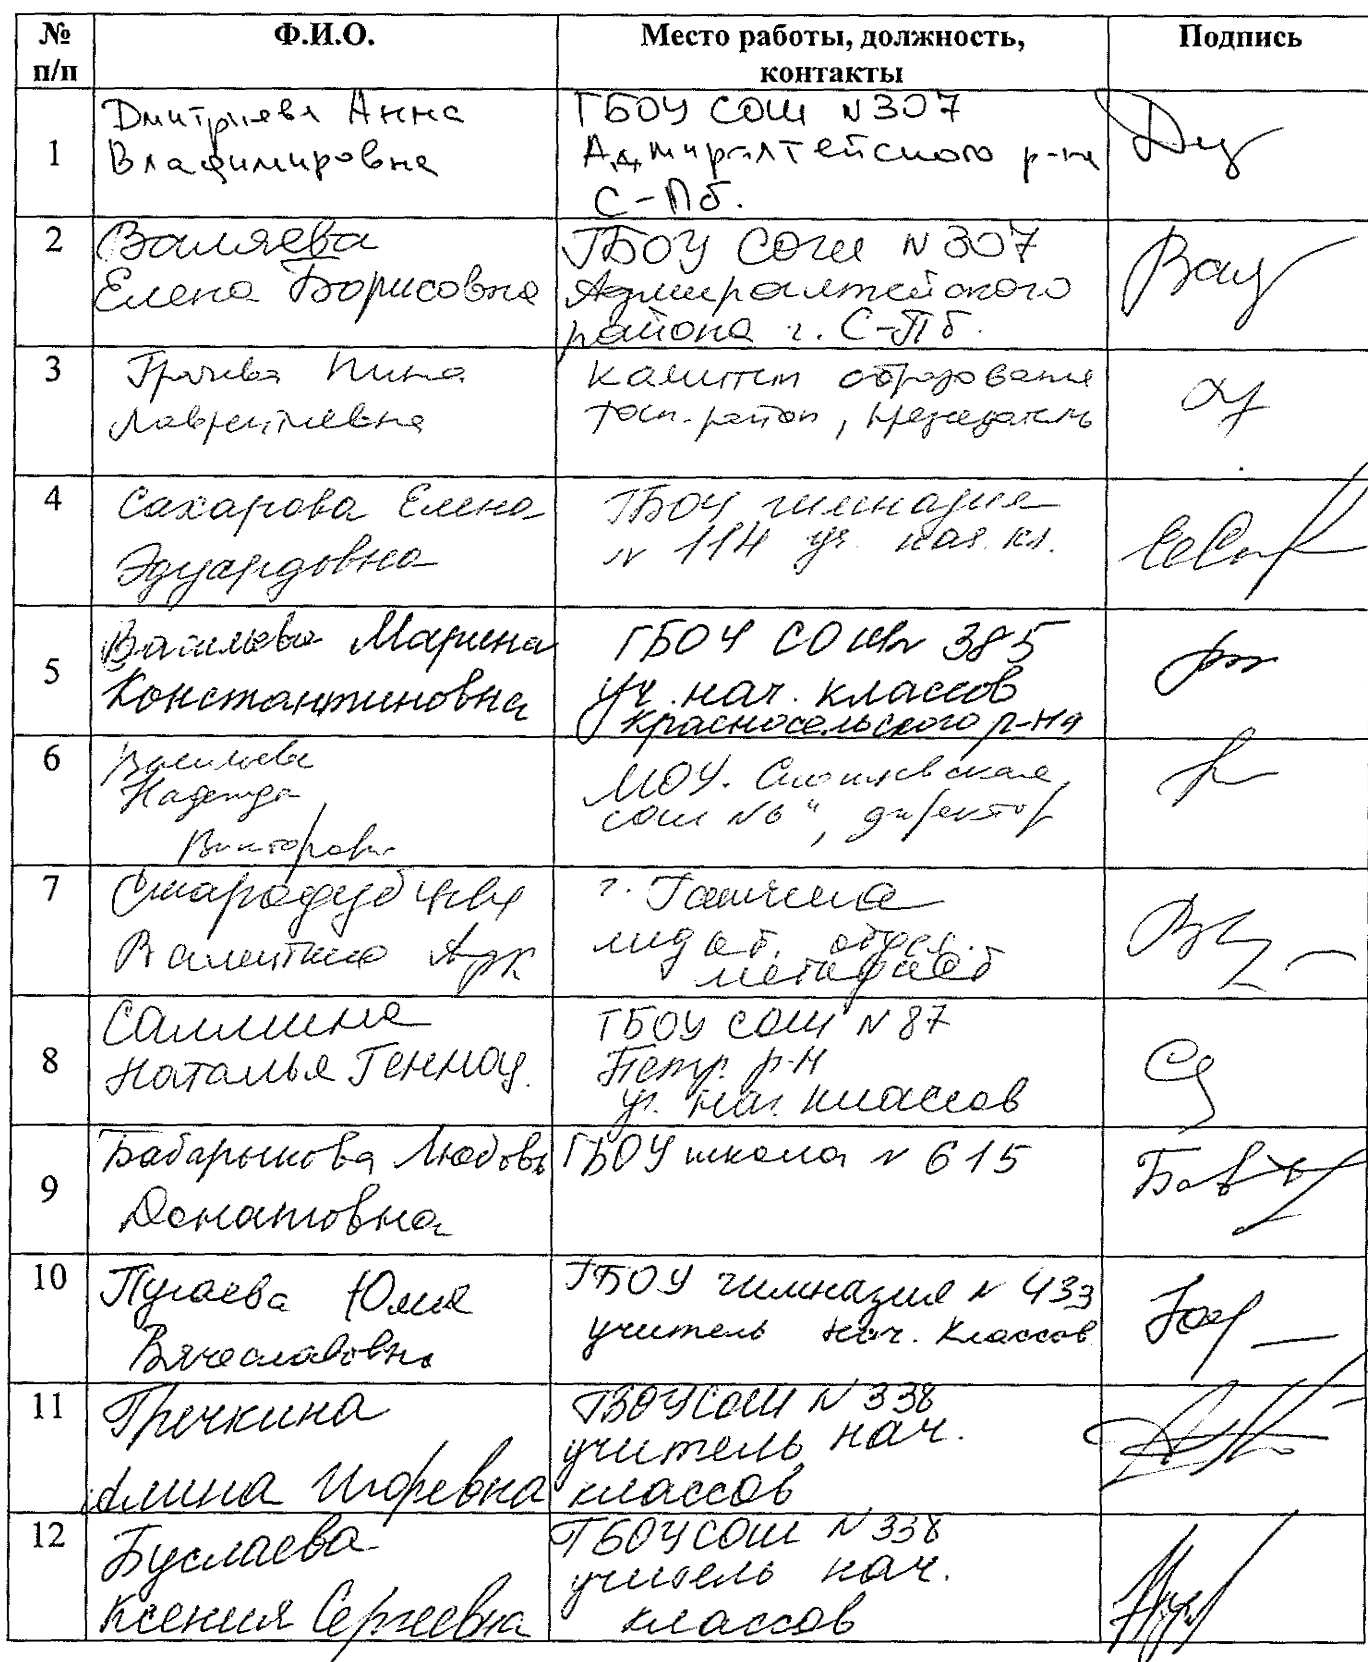 № п/п
Ф.И.О.
Место работы, должность, контакты
Подпись
1
Дмитриева Анна
Владимировна
ГБОУ СОШ N307
Адмиралтейского р-на
С-Пб.
2
Валяева
Елена Борисовна
ГБОУ СОШ N 307
Адмиралтейского
района г. С-Пб.
3
Нина
Лаврентьевна
Комитет образования
район, председатель
4
Сахарова Елена
Эдуардовна
ГБОУ гимназия
N 114 уч. нач. кл.
5
Васильева Марина
Константиновна
ГБОУ СОШ N 385
уч. нач. классов
Красносельского р-на
6
Васильева
Надежда
МОУ.
сош №6", директор
7
Стародубцева
г. Гатчина
8
Наталья Геннад.
ГБОУ СОШ N 87
Петр. р-н
уч. нач. классов
9
Бабарыкова Любовь
Донатовна
ГБОУ школа N 615
10
Пугаева Юлия
Вячеславовна
ГБОУ гимназия N 433
учитель нач. классов
11
Гречкина
Алина Игоревна
ГБОУ СОШ N 338
учитель нач.
классов
12
Буслаева
Ксения Сергеевна
ГБОУ СОШ N 338
учитель нач.
классов